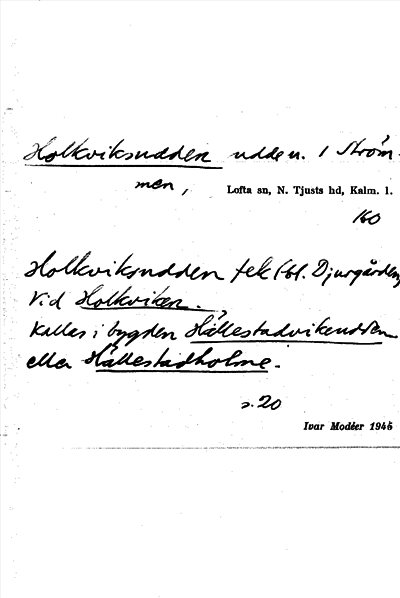 Holkviksudden udde n. i Ström-
men,
Lofta sn, N. Tjusts hd, Kalm. l.
160
Holkviksudden fek (bl. Djurgården,
vid Holkviken.
Kallas i bygden Hällestadvikeudden
eller Hällestadholme.
s. 20
Ivar Modéer 1945